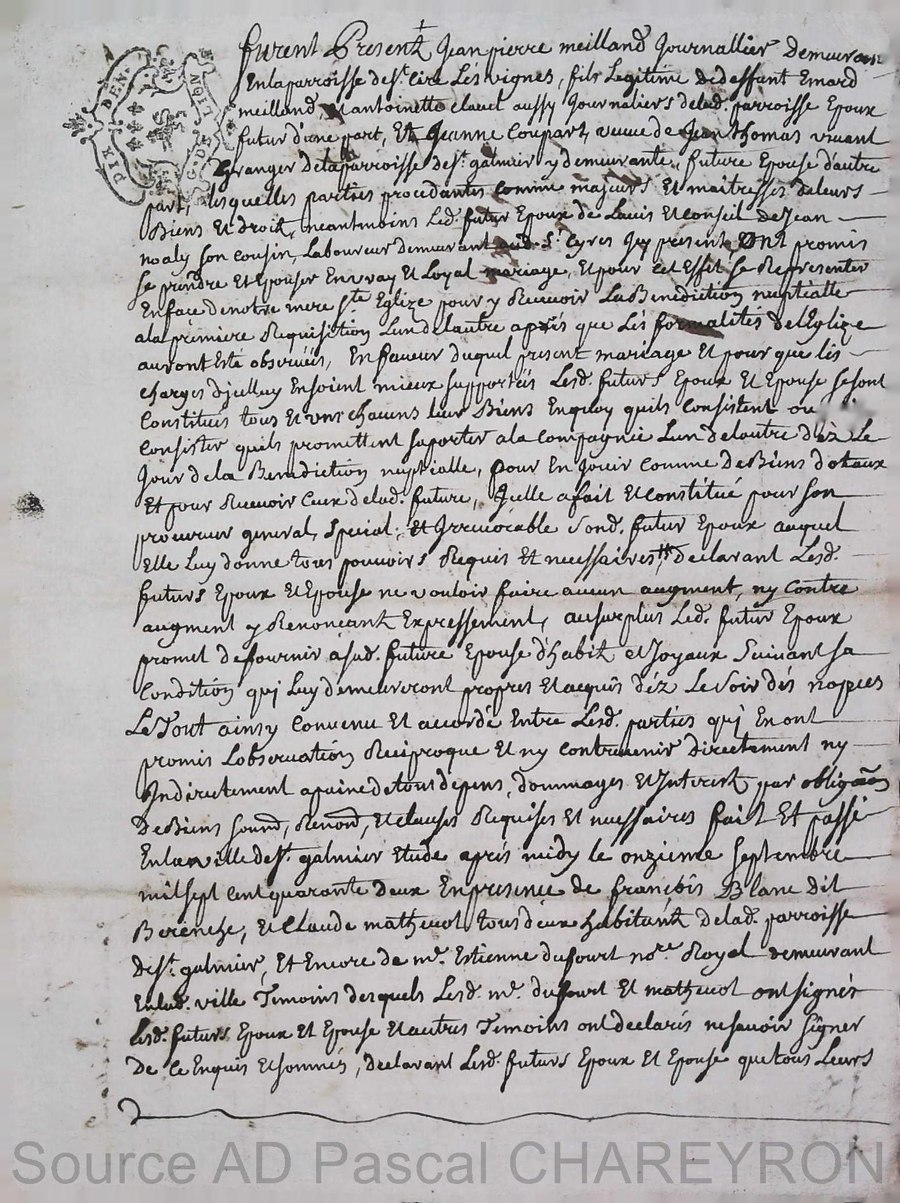 furent Presentz Jean pierre meilland Journallier Demeurant
En la parroisse de st. Cire Lés vignes, fils Legitime de deffunt Emard
meilland, Et antoinette clavel aussy Journaliers de lad. parroisse Epoux
futur d'une part, Et Jeanne Coupart, veuve de Jean thomas vivant
Granger de la parroisse de st. galmier y demeurante, future Epouse d'autre
part, lesquelles parties procedantes comme majeurs Et maitresses de leurs
Biens Et droit, neantmoins Led. futur Epoux de Lavis Et Conseil de Jean
noaly son cousin, Laboureur demeurant aud. st. Cyres Icy present, Ont promis
se prendre Et Epouser En vray Et Loyal mariage, Et pour cet Effet se Représenter
En face de notre mere ste. Eglize pour y Recevoir La Benediction nuptialle
a la première Requisition Lun de lautre après que Lés formalités de l'Eglize
auront Esté observées, En faveur duquel present mariage Et pour que lés
charges d'jcelluy En soient mieux supportéés Lesd. futurs Epoux Et Epouse se sont
Constitués tous Et uns chacuns leur Biens En quoy quils Consistent ou
Consister quils promettent saporter a la compagnie Lun de lautre déz Le
Jour de la Benediction nuptialle, pour En Joüir comme de Biens dotaux
Et pour Recevoir Ceux de lad. future, Jcelle a fait Et constitué pour son
procureur general, special, Et Irrevocable Sond. futur Epoux auquel
Elle Luy donne tous pouvoirs Requis Et necessaires, declarant Lesd.
futurs Epoux Et Epouse ne vouloir faire aucun augment, ny contre
augment y Renonçant Expressement, au surplus Led. futur Epoux
promet de fournir a sad. future Epouse d'habitz et Joyaux Suivant sa
Condition qui Luy demeureront propres Et acquis déz Le soir dés nopces
Le Tout ainsy Convenu Et accordé Entre Lesd. parties qui En ont
promis Lobservation Reciproque Et ny contrevenir directement ny
Indirectement a paine de tous depens, dommages Et Interestz par obligaon
De Biens soumd, Renond, Et clauses Requises Et necessaires fait Et passé
En la ville de st. galmier Etude après midy le onzieme septembre
mil sept cent quarante deux En presence de françois Blanc dit
Berenche, Et Claude mathevot tous deux habitantz de lad. parroisse
de st. galmier, Et Encore de mr. Estienne dufourt nore. Royal demeurant
En lad. ville Témoins desquels Lesd. mr. dufourt Et mathevot ont signés
Lesd. futurs Epoux Et Epouse Et autres Témoins ont declarés ne savoir signer
De ce Enquis Et sommés, declarant Lesd. futurs Epoux Et Epouse que tous Leurs
DIX DEN.
G. DE LION
Source AD Pascal CHAREYRON